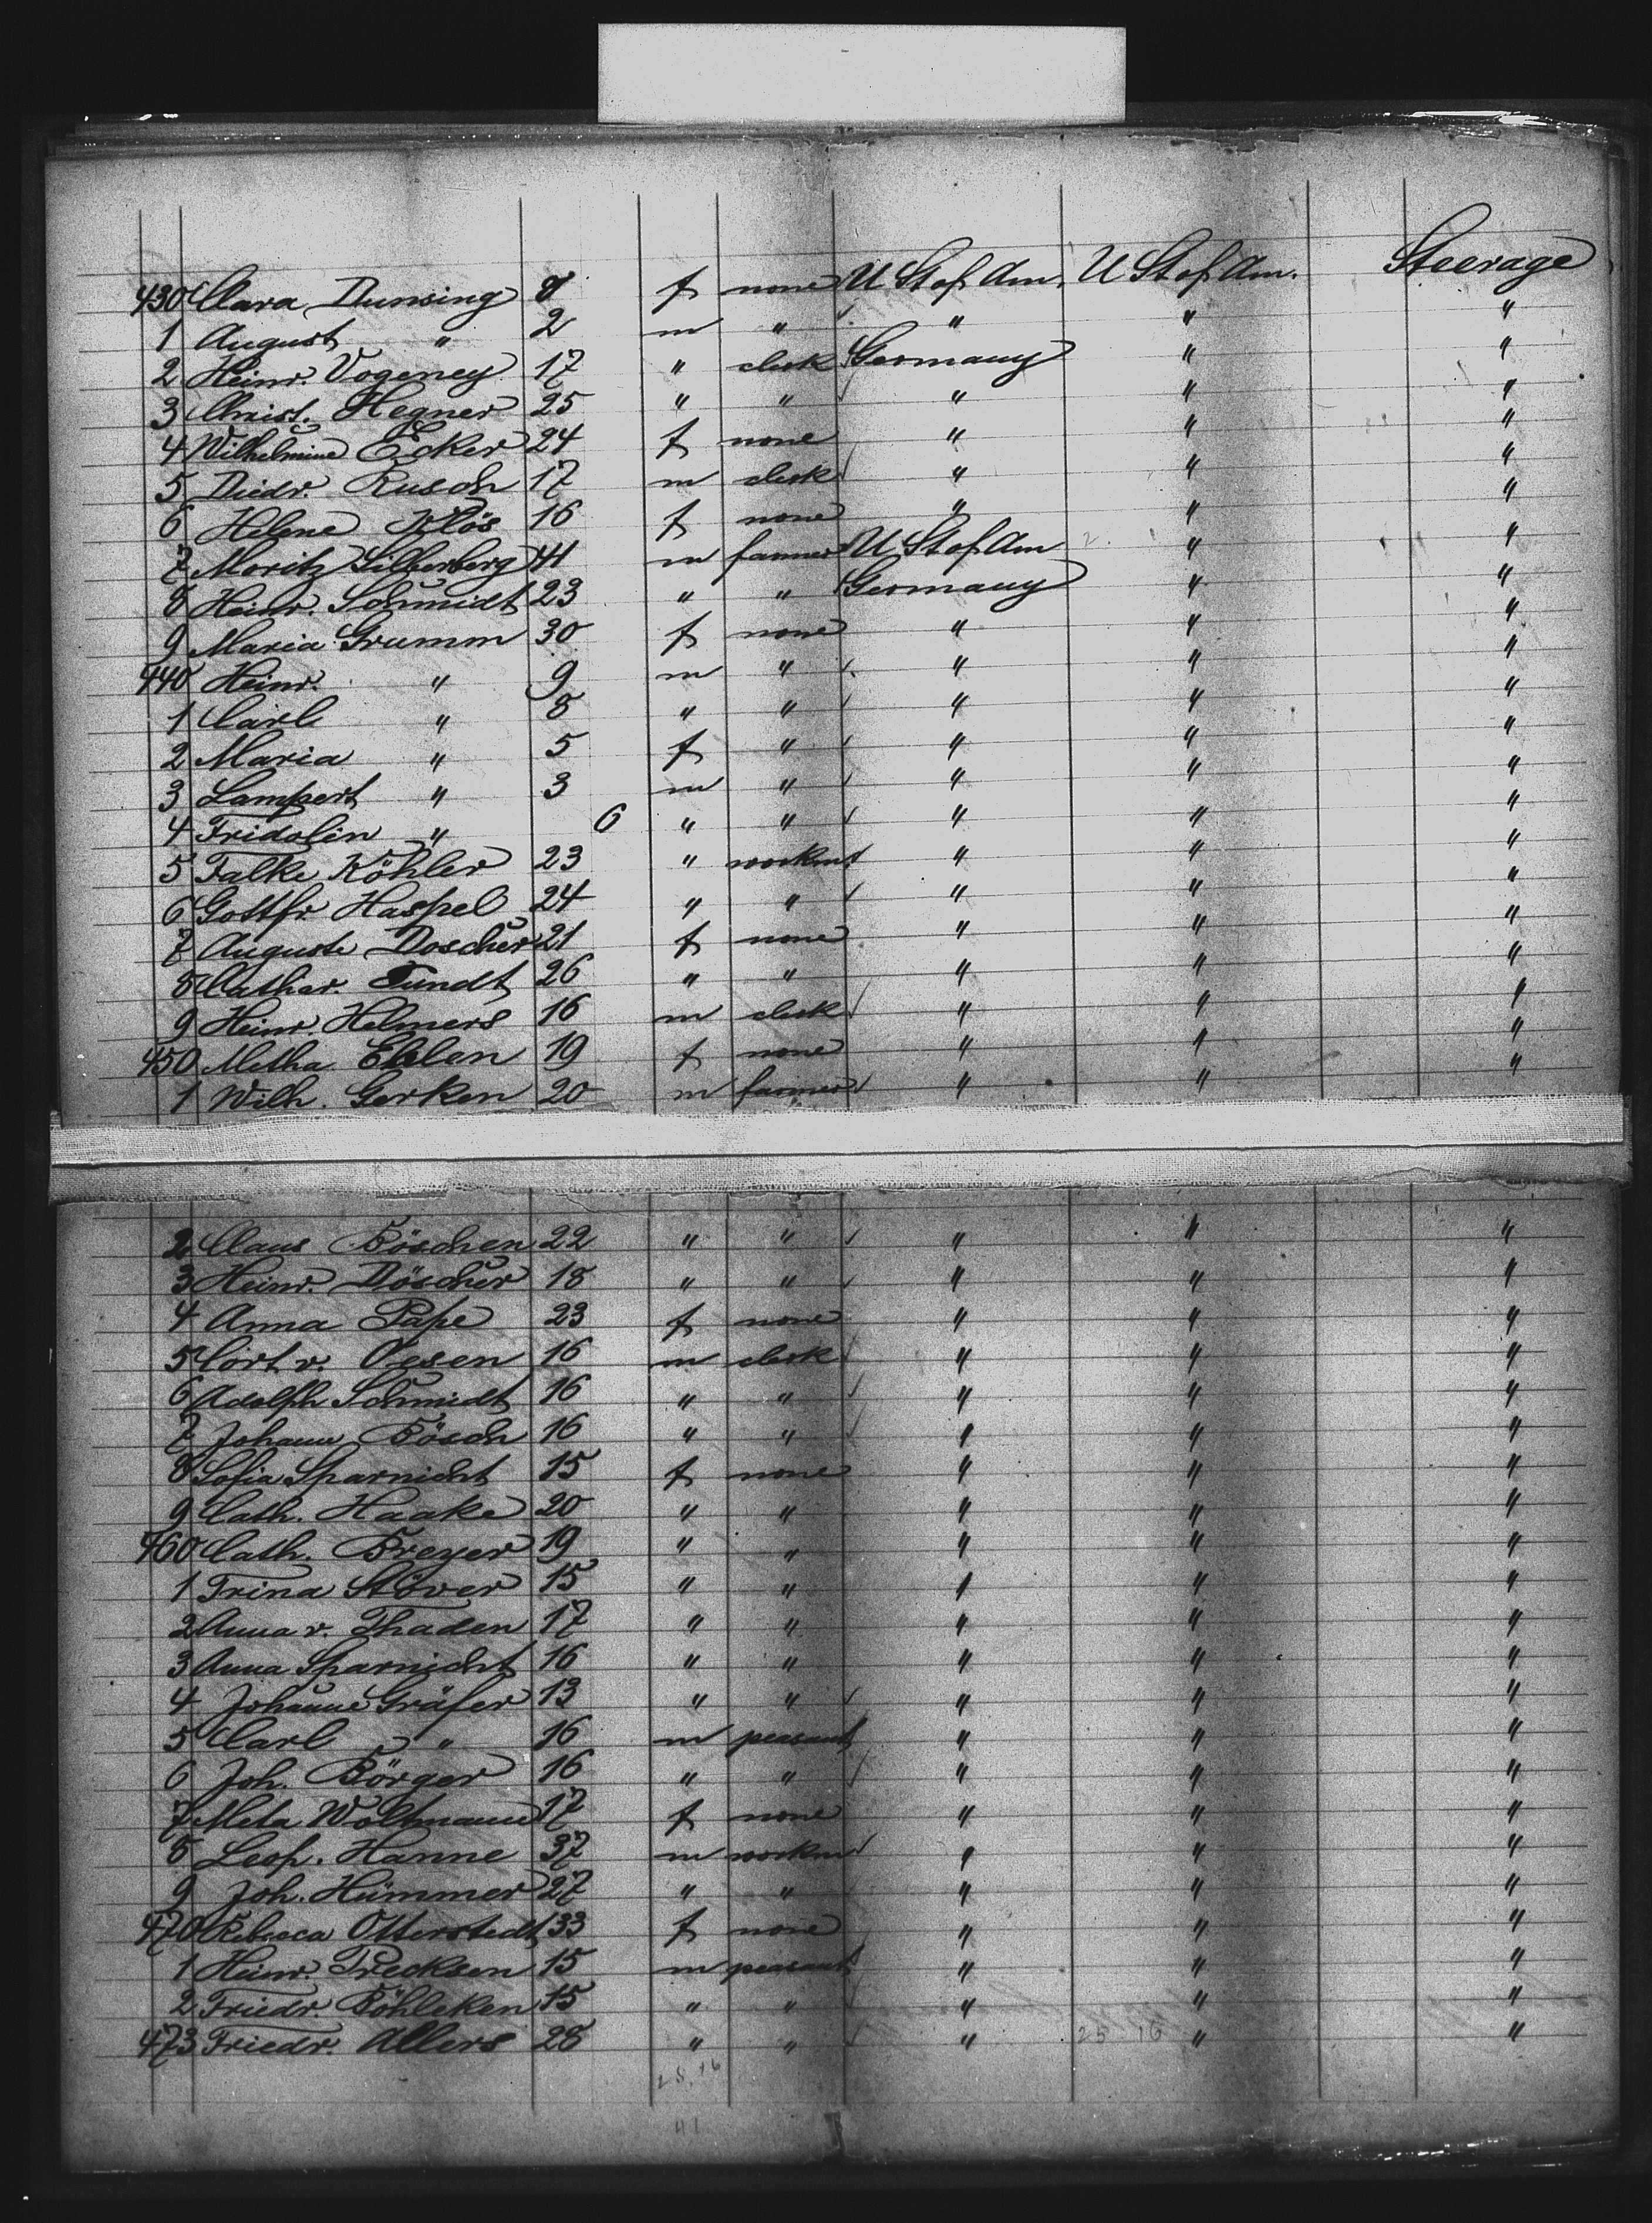 430 Clara Dunsing 8 f none U St of Am. U St of Am. Steerage
1 August " 2 m " " " "
2 Heinr. Vogeney 17 " clerk Germany " "
3 Christ. Hegner 25 " " " " "
4 Wilhelmine Ecker 24 f none " " "
5 Diedr. Rusch 17 m clerk " " "
6 Helene Klös 16 f none " " "
7 Moritz Silberberg 41 m farmer U St of Am " "
8 Heinr. Schmidt 23 " " Germany " "
9 Maria Grumm 30 f none " " "
440 Heinr. " 9 m " " " "
1 Carl " 8 " " " " "
2 Maria " 5 f " " " "
3 Lampert " 3 m " " " "
4 Fridolin " 6 " " " " "
5 Falke Köhler 23 " workm " " "
6 Gottfr Haspel 24 " " " " "
7 Auguste Doscher 21 f none " " "
8 Cathar. Tundt 26 " " " " "
9 Heinr. Helmers 16 m clerk " " "
450 Metha Ehlen 19 f none " " "
1 Wilh. Gerken 20 m farmer " " "
2 Claus Böschen 22 " " " " "
3 Heinr. Döscher 18 " " " " "
4 Anna Pape 23 f none " " "
5 Cört v. Oesen 16 m clerk " " "
6 Adolph Schmidt 16 " " " " "
7 Johann Bösch 16 " " " " "
8 Sofia Sparnicht 15 f none " " "
9 Cath. Haake 20 " " " " "
460 Cath. Breyer 19 " " " " "
1 Trina Stöver 15 " " " " "
2 Anna v. Thaden 17 " " " " "
3 Anna Sparnicht 16 " " " " "
4 Johanne Gräfer 13 " " " " "
5 Carl " 16 m peasant " " "
6 Joh. Börger 16 " " " " "
7 Meta Woltmann 17 f none " " "
8 Leop. Hanne 37 m workm " " "
9 Joh. Hümmer 27 " " " " "
470 Rebecca Otterstedt 33 f none " " "
1 Heinr. Precksen 15 m peasant " " "
2 Friedr. Böhleken 15 " " " " "
473 Friedr. Allers 28 " " " 25 16 " "
25.16
41